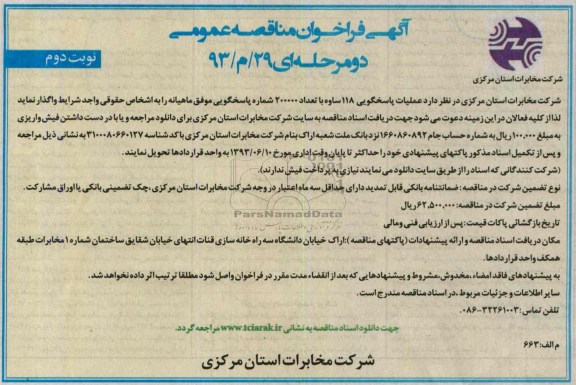 آگهی فراخوان مناقصه عمومی
دو مرحله‌ای ۲۹/م/۹۳
نوبت دوم
شرکت مخابرات استان مرکزی
شرکت مخابرات استان مرکزی در نظر دارد عملیات پاسخگویی ۱۱۸ ساوه با تعداد ۲۰۰۰۰۰ شماره پاسخگویی موفق ماهیانه را به اشخاص حقوقی واجد شرایط واگذار نماید
لذا از کلیه فعالان در این زمینه دعوت می شود جهت دریافت اسناد مناقصه به سایت شرکت مخابرات استان مرکزی برای دانلود مراجعه و یا با در دست داشتن فیش واریزی
به مبلغ ۱۰۰,۰۰۰ ریال به شماره حساب جام ۱۶۶۰۸۶۰۸۹۲ نزد بانک ملت شعبه اراک بنام شرکت مخابرات استان مرکزی با کد شناسه ۳۱۰۰۰۸۰۶۶۰۱۲۷ به نشانی ذیل مراجعه
و پس از تکمیل اسناد مذکور پاکتهای پیشنهادی خود را حداکثر تا پایان وقت اداری مورخ ۱۳۹۳/۰۶/۱۰ به واحد قراردادها تحویل نمایند.
(شرکت کنندگانی که اسناد را از طریق سایت دانلود می نمایند نیازی به پرداخت فیش ندارند).
نوع تضمین شرکت در مناقصه : ضمانتنامه بانکی قابل تمدید دارای حداقل سه ماه اعتبار در وجه شرکت مخابرات استان مرکزی، چک تضمینی بانکی یا اوراق مشارکت.
مبلغ تضمین شرکت در مناقصه: ۶۲,۵۰۰,۰۰۰ ریال
تاریخ بازگشائی پاکات قیمت: پس از ارزیابی فنی و مالی
مکان دریافت اسناد مناقصه و ارائه پیشنهادات (پاکتهای مناقصه ): اراک خیابان دانشگاه سه راه خانه سازی قنات انتهای خیابان شقایق ساختمان شماره ۱ مخابرات طبقه
همکف واحد قراردادها.
به پیشنهادهای فاقد امضاء، مخدوش، مشروط و پیشنهادهایی که بعد از انقضاء مدت مقرر در فراخوان واصل شود مطلقا ترتیب اثر داده نخواهد شد.
سایر اطلاعات و جزئیات مربوط، در اسناد مناقصه مندرج است.
تلفن تماس: ۳۲۲۶۱۰۰۳-۰۸۶
جهت دانلود اسناد مناقصه به نشانی www.tciarak.ir مراجعه گردد.
م الف: ۶۶۳
شرکت مخابرات استان مرکزی
ParsNamadData